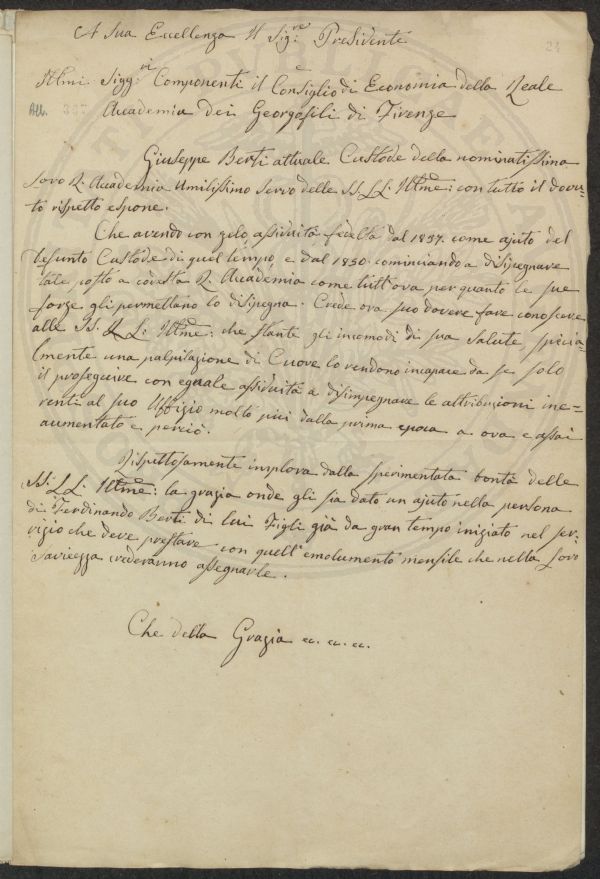 24
A Sua Eccellenza Il Sig:re Presidente
e
Illmi Sigg:ri Componenti il Consiglio di Economia della Reale
Accademia dei Georgofili di Firenze
Giuseppe Berti attuale Custode della nominatissima
Loro R. Accademia Umilissimo Servo delle SS: LL: Illme: con tutto il dovu-
to rispetto espone.
Che avendo con zelo, assiduità, fedeltà dal 1837. come ajuto del
Defunto Custode di quel tempo, e dal 1850. cominciando a disipegnare
tale posto a codesta R. Accademia come tutt'ora per quanto le sue
forze gli permettano lo disipegna. Crede ora suo dovere fare conoscere
alle SS: LL: Illme: che stante gli incomodi di sua salute, specia-
lmente una palpitazione di Cuore lo rendono incapace da se solo
il proseguire con eguale assiduità a disimpegnare le attribuzioni ine-
renti al suo Uffizio molto più dalla prima epoca a ora e assai
aumentato e perciò.
Rispettosamente implora dalla sperimentata bontà delle
SS: LL: Illme: la grazia onde gli sia dato un ajuto nella persona
di Ferdinando Berti di lui Figlio già da gran tempo iniziato nel ser-
vizio che deve prestare con quell'emolumento mensile che nella Loro
saviezza crederanno assegnarle.
Che della Grazia ec. ec. ec.